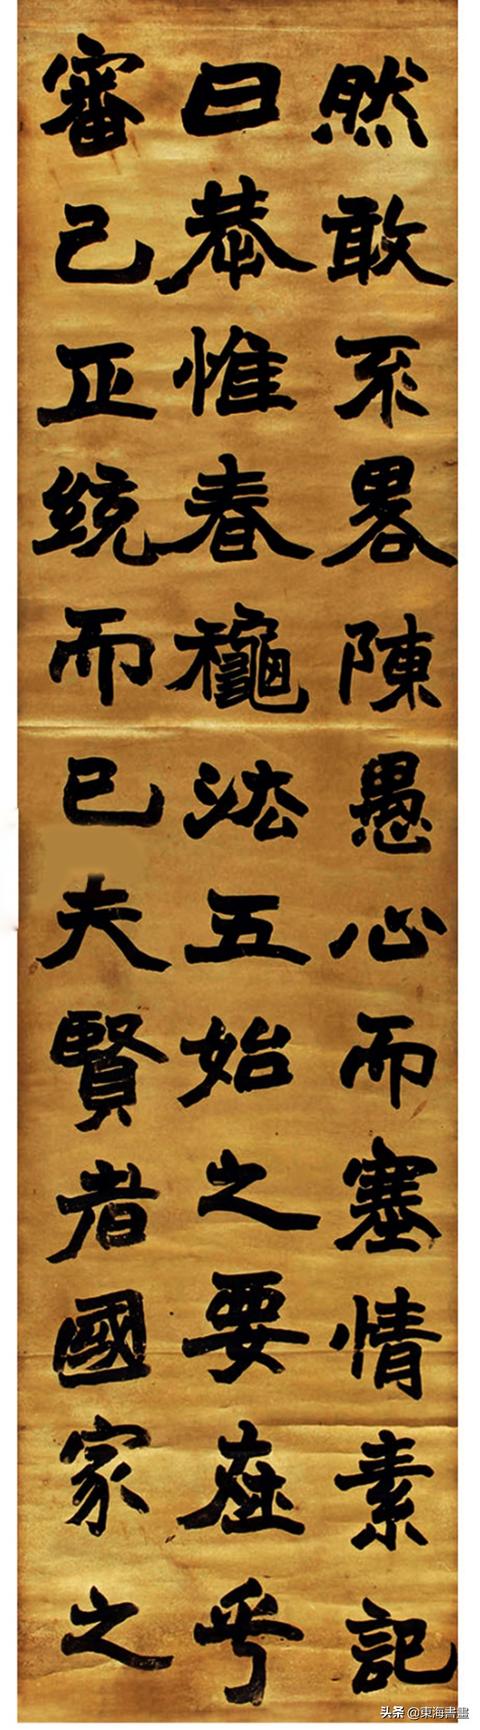 然敢不畧陳愚心而塞情素記
曰恭惟春穐法五始之要在乎
審己正统而已夫賢者國家之
头条 @東海書畫